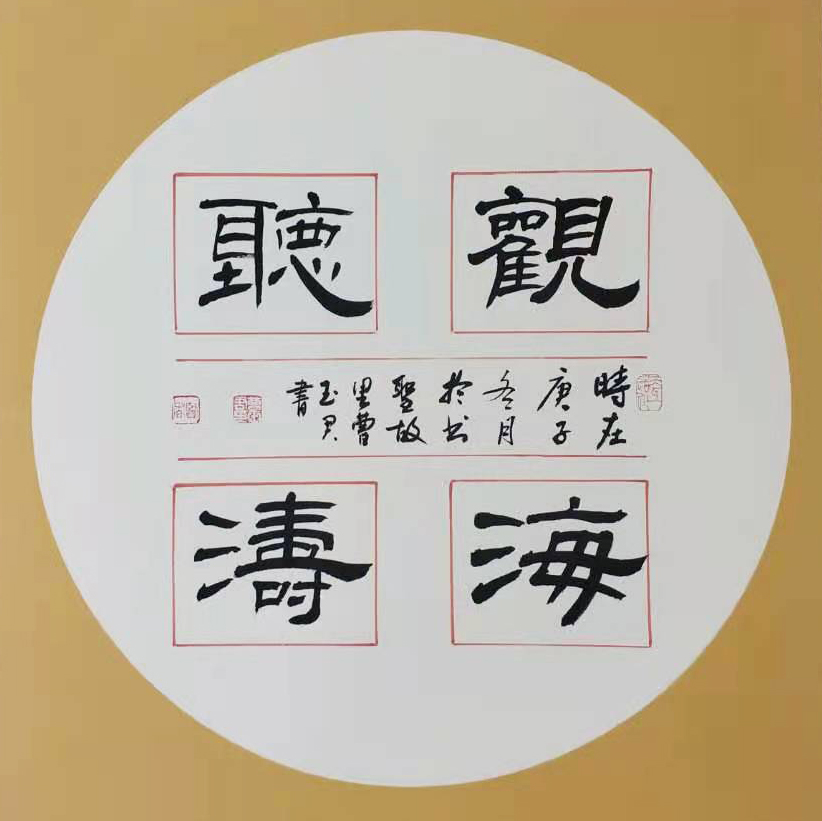 觀海
聽濤
時在
庚子
冬月
於書
聖故
里曹
玉君
書